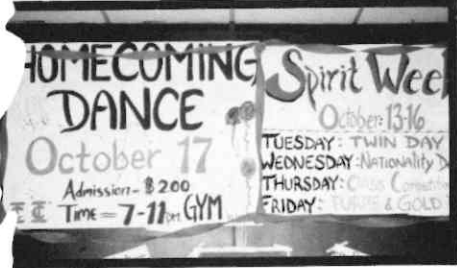 HOMECOMING
DANCE
October 17
Admission - $2.00
Time = 7-11 pm GYM
Spirit Week
October 13-16
TUESDAY: TWIN DAY
WEDNESDAY: NATIONALITY D
THURSDAY: Class Competition
FRIDAY: PURPLE & GOLD